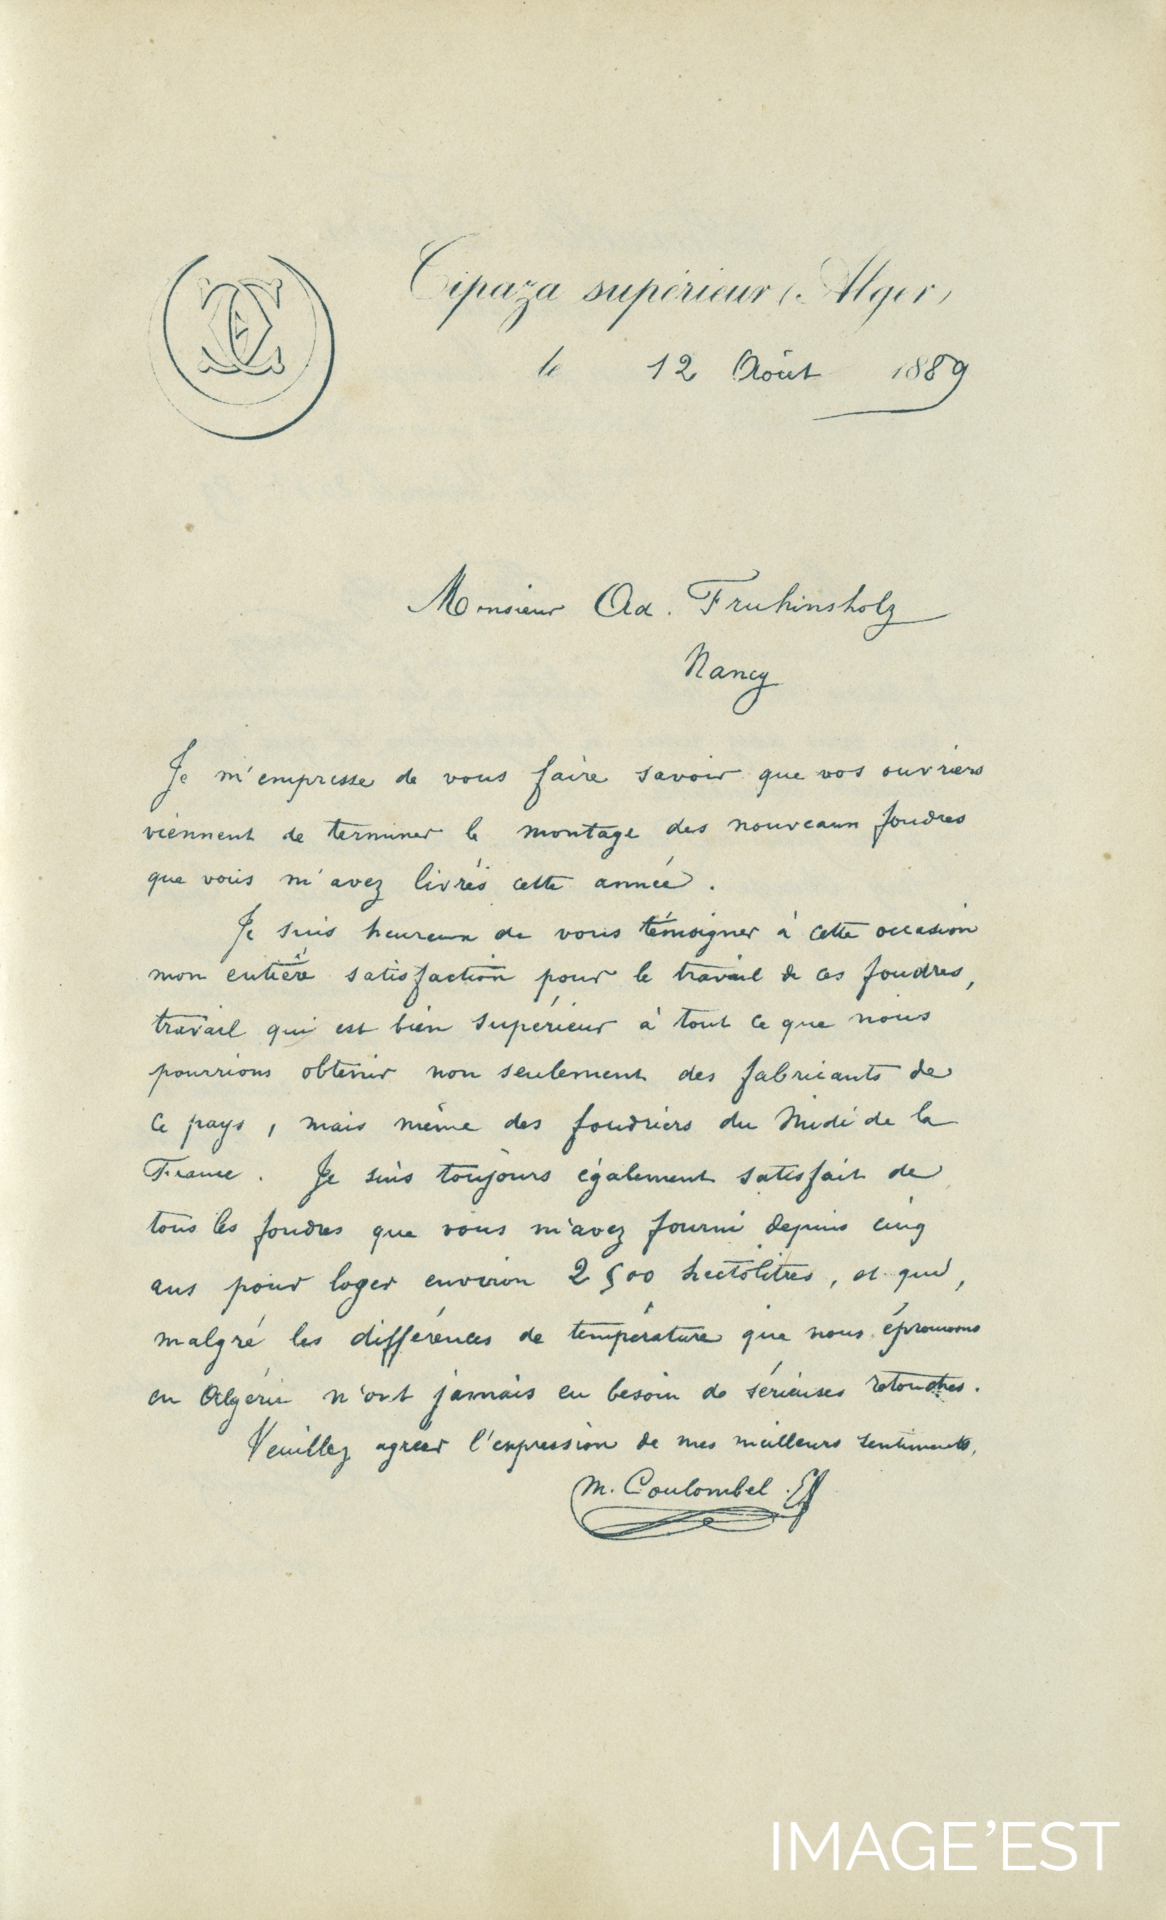 Tipaza supérieur (Alger)
le 12 Août 1889
Monsieur Ad. Fruhinsholz
Nancy
Je m'empresse de vous faire savoir que vos ouvriers
viennent de terminer le montage des nouveaux foudres
que vous m'avez livrés cette année.
Je suis heureux de vous témoigner à cette occasion
mon entière satisfaction pour le travail de ces foudres,
travail qui est bien supérieur à tout ce que nous
pourrions obtenir non seulement des fabricants de
ce pays, mais même des foudriers du Midi de la
France. Je suis toujours également satisfait de
tous les foudres que vous m'avez fourni depuis cinq
ans pour loger environ 2500 hectolitres, et qui,
malgré les différences de température que nous éprouvons
en Algérie n'ont jamais eu besoin de sérieuses retouches.
Veuillez agréer l'expression de mes meilleurs sentiments,
M. Coulombel
IMAGE'EST